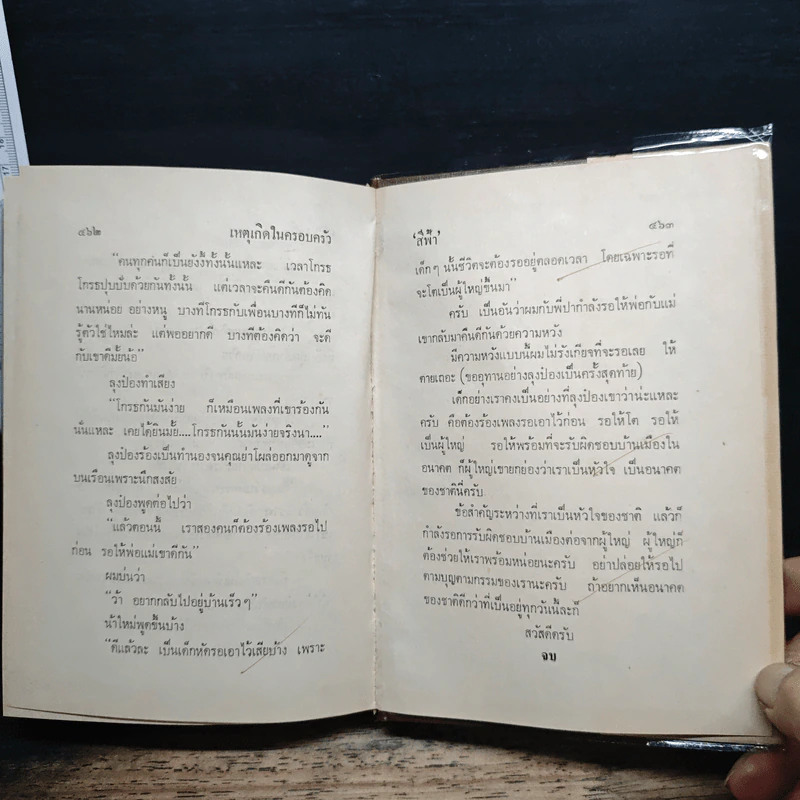 ๔๖๒
เหตุเกิดในครอบครัว
"คนทุกคนก็เป็นยังงี้ทั้งนั้นแหละ เวลาโกรธ
โกรธปุบปับด้วยกันทั้งนั้น แต่เวลาจะคืนดีกันต้องคิด
นานหน่อย อย่างหนู บางทีโกรธกับเพื่อนบางทีก็ไม่ทัน
รู้ตัวใช่ไหมล่ะ แต่พออยากดี บางทีต้องคิดว่า จะดี
กับเขาดีมั้ยน้อ"
ลุงป๋องทำเสียง
"โกรธกันมันง่าย ก็เหมือนเพลงที่เขาร้องกัน
นั่นแหละ เคยได้ยินมั้ย....โกรธกันนั้นมันง่ายจริงนา...."
ลุงป๋องร้องเป็นทำนองจนคุณย่าโผล่ออกมาดูจาก
บนเรือนเพราะนึกสงสัย
ลุงป๋องพูดต่อไปว่า
"แล้วตอนนี้ เราสองคนก็ต้องร้องเพลงรอไป
ก่อน รอให้พ่อแม่เขาดีกัน"
ผมบ่นว่า
"ว้า อยากกลับไปอยู่บ้านเร็วๆ"
น้าใหม่พูดขึ้นบ้าง
"ดีแล้วละ เป็นเด็กหัดรอเอาไว้เสียบ้าง เพราะ
'สีฟ้า'
๔๖๓
เด็กๆ นั้นชีวิตจะต้องรออยู่ตลอดเวลา โดยเฉพาะรอที่
จะโตเป็นผู้ใหญ่ขึ้นมา"
ครับ เป็นอันว่าผมกับพี่ปากำลังรอให้พ่อกับแม่
เขากลับมาคืนดีกันด้วยความหวัง
มีความหวังแบบนี้ผมไม่รังเกียจที่จะรอเลย ให้
ตายเถอะ (ขออุทานอย่างลุงป๋องเป็นครั้งสุดท้าย)
เด็กอย่างเราคงเป็นอย่างที่ลุงป๋องเขาว่าน่ะแหละ
ครับ คือต้องร้องเพลงรอเอาไว้ก่อน รอให้โต รอให้
เป็นผู้ใหญ่ รอให้พร้อมที่จะรับผิดชอบบ้านเมืองใน
อนาคต ก็ผู้ใหญ่เขายกย่องว่าเราเป็นหัวใจ เป็นอนาคต
ของชาตินี่ครับ
ข้อสำคัญระหว่างที่เราเป็นหัวใจของชาติ แล้วก็
กำลังรอการรับผิดชอบบ้านเมืองต่อจากผู้ใหญ่ ผู้ใหญ่ก็
ต้องช่วยให้เราพร้อมหน่อยนะครับ อย่าปล่อยให้รอไป
ตามบุญตามกรรมของเรานะครับ ถ้าอยากเห็นอนาคต
ของชาติดีกว่าที่เป็นอยู่ทุกวันนี้ละก็
สวัสดีครับ
จบ